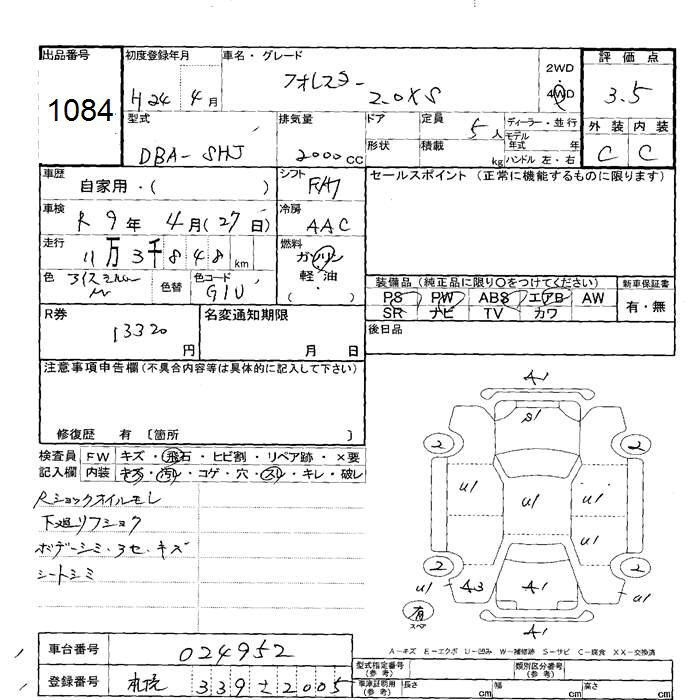 出品番号
1084
初度登録年月
H24 年 4月
車名・グレード
フォレスター
2.0XS
2WD
4WD
評価点
3.5
外装 内装
C C
型式
DBA-SHJ
排気量
2000 CC
ドア
定員
5人
ディーラー・並行
形状
積載
kg
モデル年式 年
ハンドル 左・右
車歴
自家用・( )
シフト
FAT
セールスポイント (正常に機能するものに限ります)
車検
R 9年 4月(27日)
冷房
AAC
走行
11万3千848km
燃料
ガソリン
・
軽油
( )
色
色替
色コード
G1U
装備品 (純正品に限り○をつけてください)
PS PW ABS エアB AW
SR ナビ TV カワ
新車保証書
有・無
R券
13320
円
名変通知期限
月 日
後日品
注意事項申告欄 (不具合内容等は具体的に記入して下さい)
修復歴 有 〔箇所 〕
検査員記入欄
FW キズ・飛石・ヒビ割・リペア跡・×要
内装 キズ・汚れ・コゲ・穴・スレ・キレ・破レ
Rショックオイルモレ
下廻リフショク
ボデーシミ・ヨゴレ・キズ
シートシミ
A1
S1
2
2
U1
U1
U1
2
2
U1
A3
A1
U1
有
スペア
A1
A-キズ E-エクボ U-凹み W-補修跡 S-サビ C-腐食 XX-交換済
車台番号
024952
登録番号
札幌 339 せ 2005
型式指定番号
(参考)
類別区分番号
(参考)
車庫証明用
(参考)
長さ cm
幅 cm
高さ cm